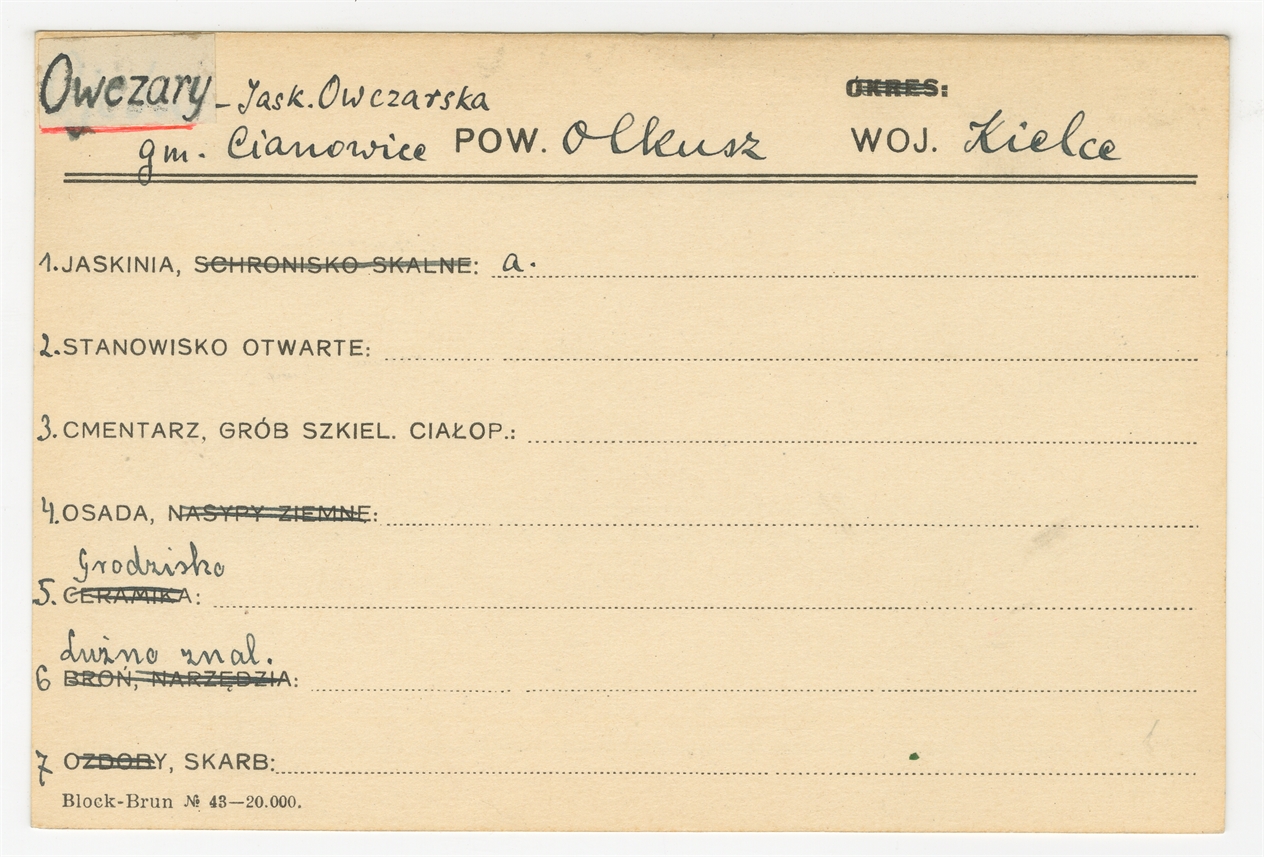 Owczary - Jask. Owczarska
OKRES:
gm. Cianowice POW. Olkusz WOJ. Kielce
1. JASKINIA, SCHRONISKO SKALNE: a.
2. STANOWISKO OTWARTE:
3. CMENTARZ, GRÓB SZKIEL. CIAŁOP.:
4. OSADA, NASYPY ZIEMNE:
Grodzisko
5. CERAMIKA:
Luźne znal.
6 BROŃ, NARZĘDZIA:
7 OZDOBY, SKARB:
Block-Brun № 43—20.000.